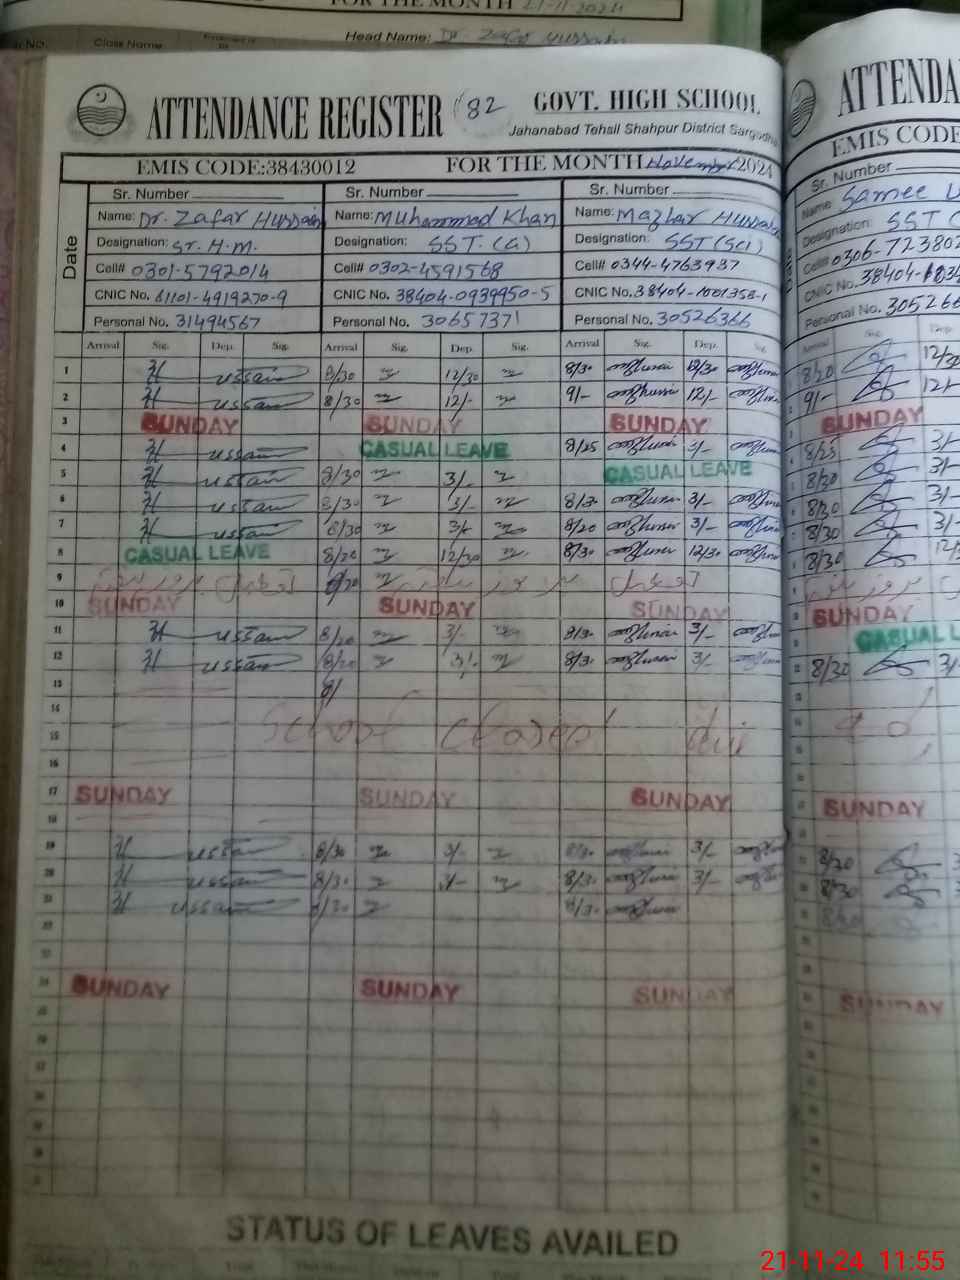 FOR THE MONTH 21-11-2024
Class Name
Head Name: Dr. Zafar Hussain
ATTENDANCE REGISTER 82 GOVT. HIGH SCHOOL
Jahanabad Tehsil Shahpur District Sargodha
EMIS CODE:38430012 FOR THE MONTH November 2024
Sr. Number Sr. Number Sr. Number
Name: Dr. Zafar Hussain Name: Muhammad Khan Name: Mazhar Hussain
Designation: Sr. H.M. Designation: SST.(G) Designation: SST(Sci)
Cell# 0301-5792014 Cell# 0302-4591568 Cell# 0344-4763937
CNIC No. 61101-4919270-9 CNIC No. 38404-0939950-5 CNIC No. 38404-1001358-1
Personal No. 31494567 Personal No. 30657371 Personal No. 30526366
Date
Arrival Sig. Dep. Sig. Arrival Sig. Dep. Sig. Arrival Sig. Dep. Sig
1 H ussain 8/30 12/30 8/30 12/30
2 H ussain 8/30 12/- 9/- 12/-
3 SUNDAY SUNDAY SUNDAY
4 H ussain CASUAL LEAVE 8/25 3/-
5 H ussain 8/30 3/- CASUAL LEAVE
6 H ussain 8/30 3/- 8/30 3/-
7 H ussain 8/30 3/- 8/20 3/-
8 CASUAL LEAVE 8/20 12/30 8/30 12/30
9 8/20
10 SUNDAY SUNDAY SUNDAY
11 H ussain 8/20 3/- 8/30 3/-
12 H ussain 8/20 3/- 8/30 3/-
13 8/
14
15 School closed
16
17 SUNDAY SUNDAY SUNDAY
18
19 H ussain 8/30 3/- 8/30 3/-
20 H ussain 8/30 3/- 8/30 3/-
21 H ussain 8/30 8/30
22
23
24 SUNDAY SUNDAY SUNDAY
25
STATUS OF LEAVES AVAILED
ATTENDA
EMIS CODE
Sr. Number
Name: Samee U
Designation: SST (
Cell# 0306-723802
CNIC No. 38404-
Personal No. 305266
Sig. Dep.
8/20 12/30
9/- 12/-
SUNDAY
8/25 3/-
8/20 3/-
8/30 3/-
8/30 3/-
8/30 12/3
SUNDAY
CASUAL L
8/30 3/-
SUNDAY
8/20 3
8/30 3
SUNDAY
21-11-24 11:55